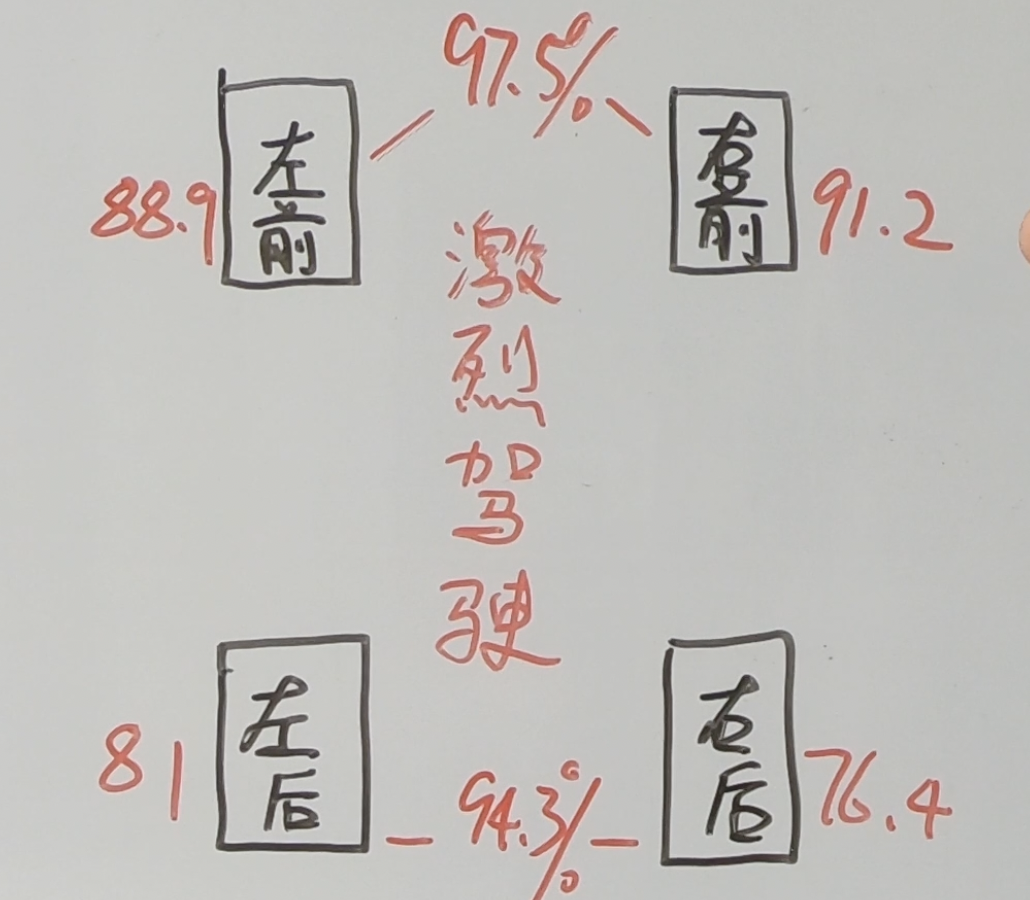 97.5%
左前
右前
88.9
91.2
激烈驾驶
左后
右后
81
76.4
94.3%